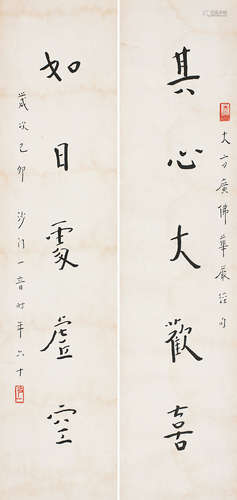 其心大歡喜
大方廣佛華嚴經句
如日處虛空
歲次己卯 沙門一音時年六十